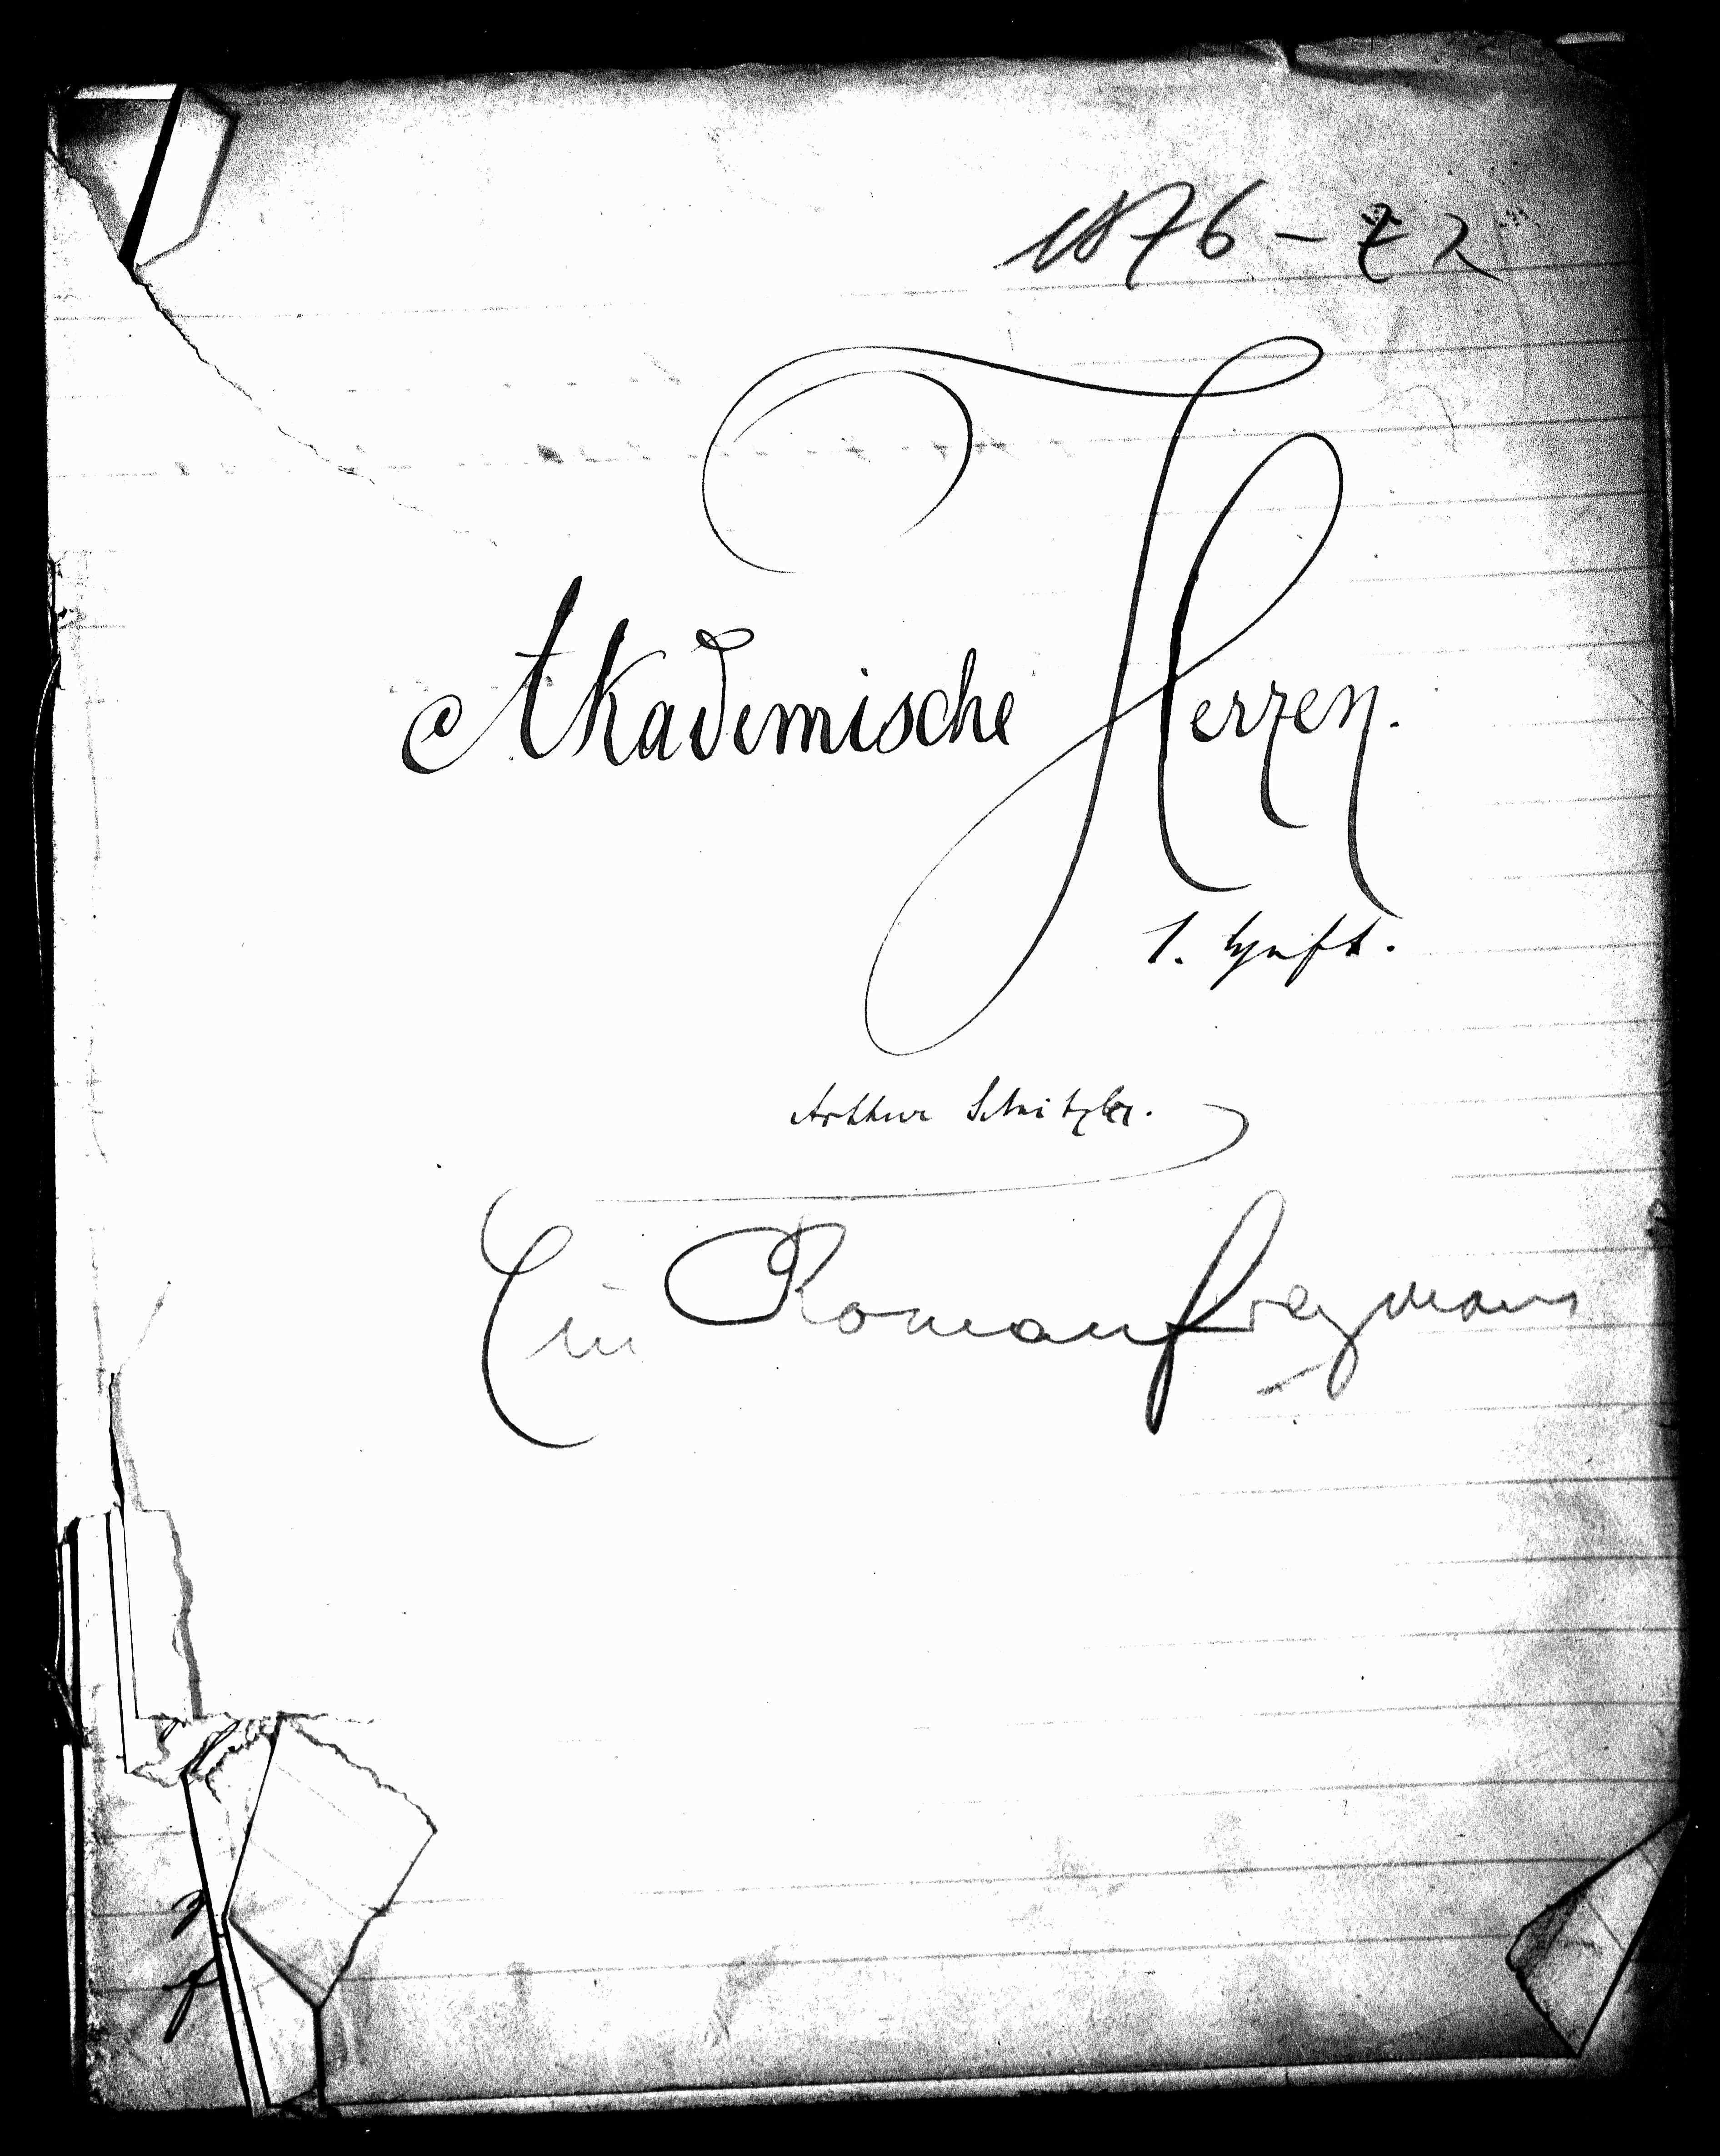 1876 –
Akademische Herzen.
1. Heft.
Arthur Schnitzler.
Ein Romanfragment